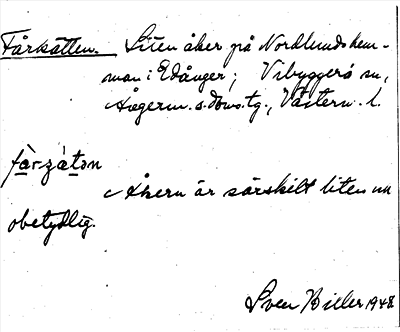 Fårkätten. Liten åker på Nordlundshem-
man i Edånger; Vibyggerå sn,
Ångerm. s. doms.tg., Västern. l.
fà̱r-ʒá̱tən
Åkern är särskilt liten en
obetydlig.
Sven Biller 1948